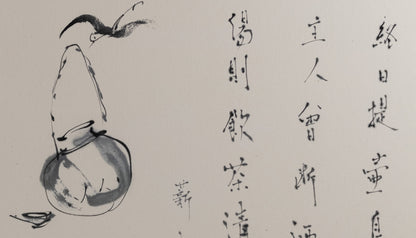 終日提壺自
主人曾斷酒
渴則飲茶清
蘄